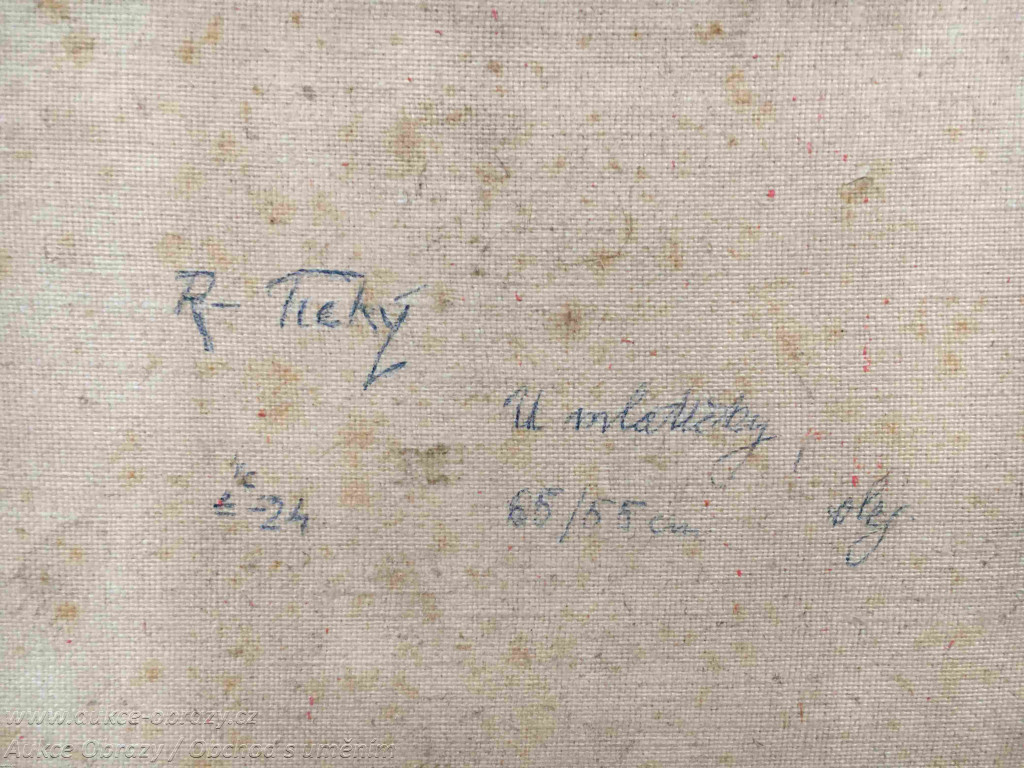 R- Tichý
U mlatičky,
-24
65/55 cm
olej
www.aukce-obrazy.cz
Aukce Obrazy / Obchod s uměním